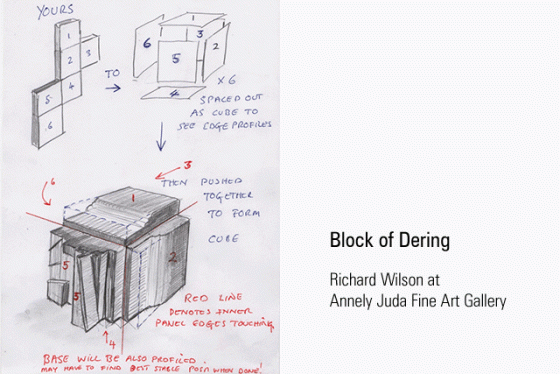 YOURS
1
2
3
4
5
6
TO
1
6
3
2
5
4
X6
SPACED OUT
AS CUBE TO
SEE EDGE PROFILES
6
3
THEN PUSHED
TOGETHER
TO FORM
CUBE
1
2
5
5
4
RED LINE
DENOTES INNER
PANEL EDGES TOUCHING
BASE WILL BE ALSO PROFILED.
MAY HAVE TO FIND BEST STABLE POSN WHEN DONE!
Block of Dering
Richard Wilson at
Annely Juda Fine Art Gallery